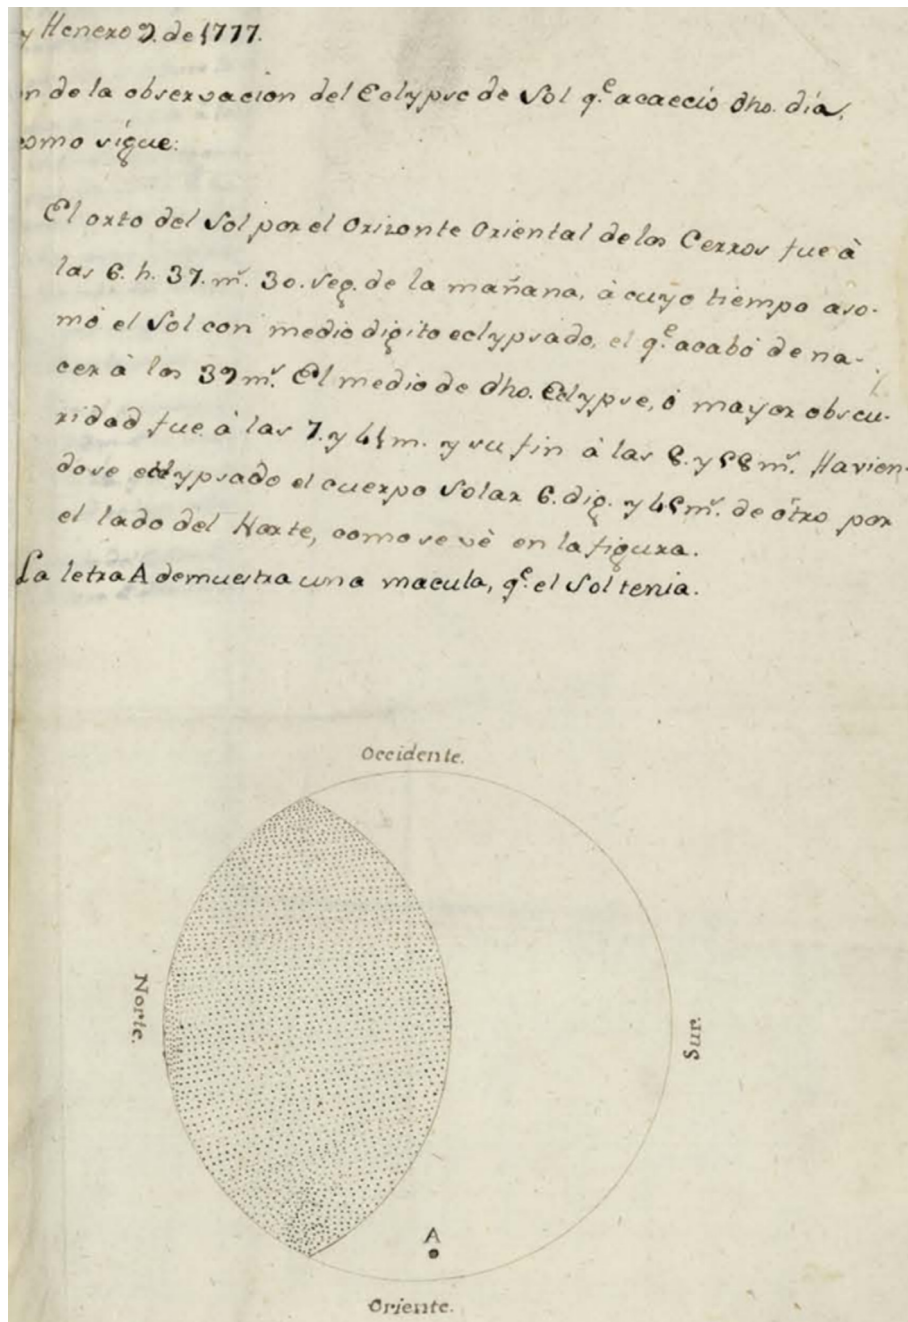 y Henero 9. de 1777.
n de la observacion del Eclypse de Sol q.e acaeciò dho. dia,
como sigue:
El orto del Sol por el Orizonte Oriental de los Cerros fue à
las 6. h. 37. m.s 30. seg. de la mañana, à cuyo tiempo aso-
mó el Sol con medio digito eclypsado, el q.e acabó de na-
cer à los 39 m.s El medio de dho. Eclypse, ó mayor obscu-
ridad fue à las 7. y 41 m. y su fin à las 8. y 58 m.s Havien-
dose eclypsado el cuerpo Solar 6. dig. y 45 m.s de ótro por
el lado del Norte, como se vè en la figura.
La letra A demuestra una macula, q.e el Sol tenia.
Occidente.
Norte.
Sur.
A
Oriente.